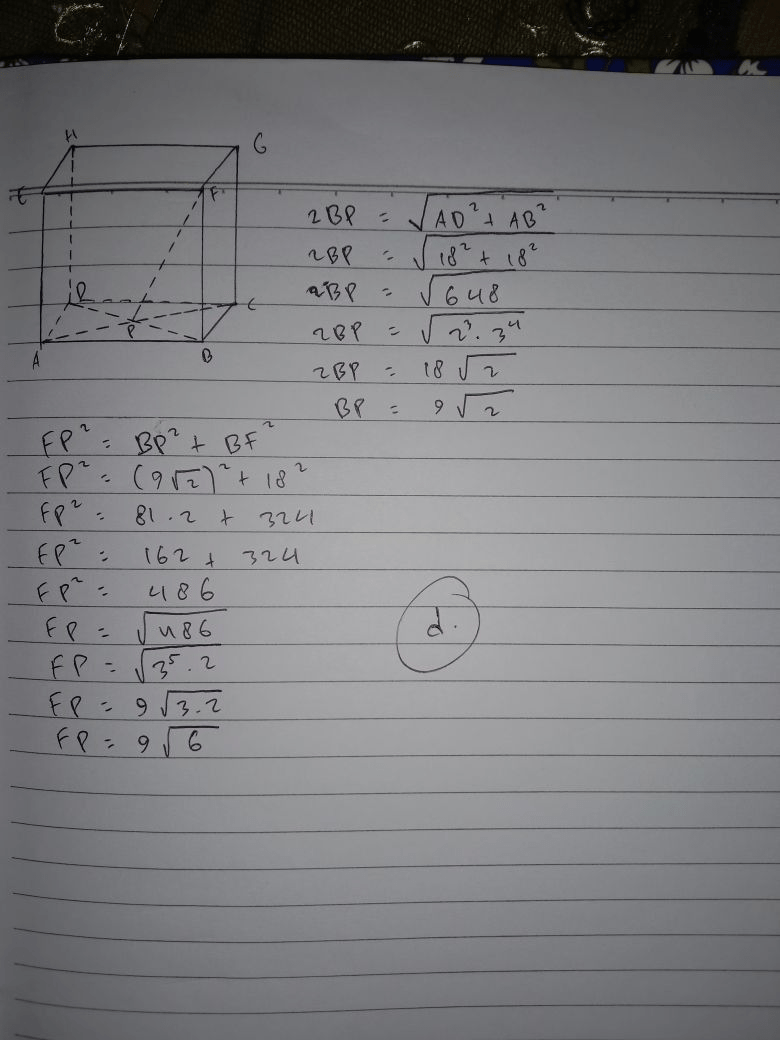 H G
E F
D C
P
A B
2BP = √AD² + AB²
2BP = √18² + 18²
2BP = √648
2BP = √2³ . 3⁴
2BP = 18 √2
BP = 9 √2
FP² = BP² + BF²
FP² = (9√2)² + 18²
FP² = 81 . 2 + 324
FP² = 162 + 324
FP² = 486
FP = √486
FP = √3⁵ . 2
FP = 9 √3.2
FP = 9 √6
d.